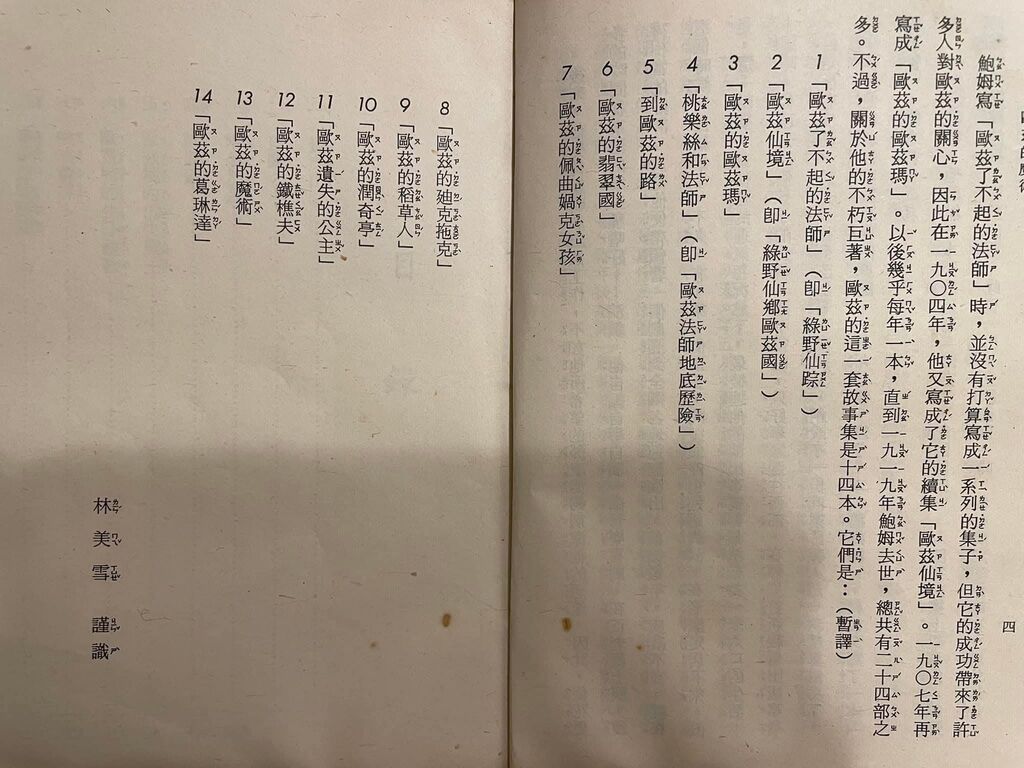 四
鮑姆寫「歐茲了不起的法師」時，並沒有打算寫成一系列的集子，但它的成功帶來了許
多人對歐茲的關心，因此在一九〇四年，他又寫成了它的續集「歐茲仙境」。一九〇七年再
寫成「歐茲的歐茲瑪」。以後幾乎每年一本，直到一九一九年鮑姆去世，總共有二十四部之
多。不過，關於他的不朽巨著，歐茲的這一套故事集是十四本。它們是：（暫譯）
1「歐茲了不起的法師」（卽「綠野仙踪」）
2「歐茲仙境」（卽「綠野仙鄉歐茲國」）
3「歐茲的歐茲瑪」
4「桃樂絲和法師」（卽「歐茲法師地底歷險」）
5「到歐茲的路」
6「歐茲的翡翠國」
7「歐茲的佩曲媧克女孩」
8「歐茲的廸克拖克」
9「歐茲的稻草人」
10「歐茲的潤奇亭」
11「歐茲遺失的公主」
12「歐茲的鐵樵夫」
13「歐茲的魔術」
14「歐茲的葛琳達」
林美雪 謹識